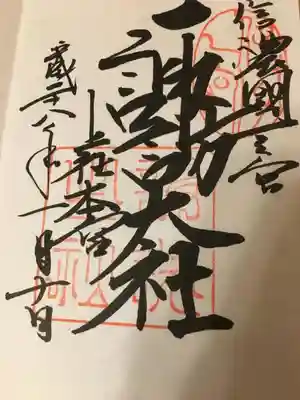 信濃國一之宮
諏訪大社
上社本宮
平成二十八年一月十日